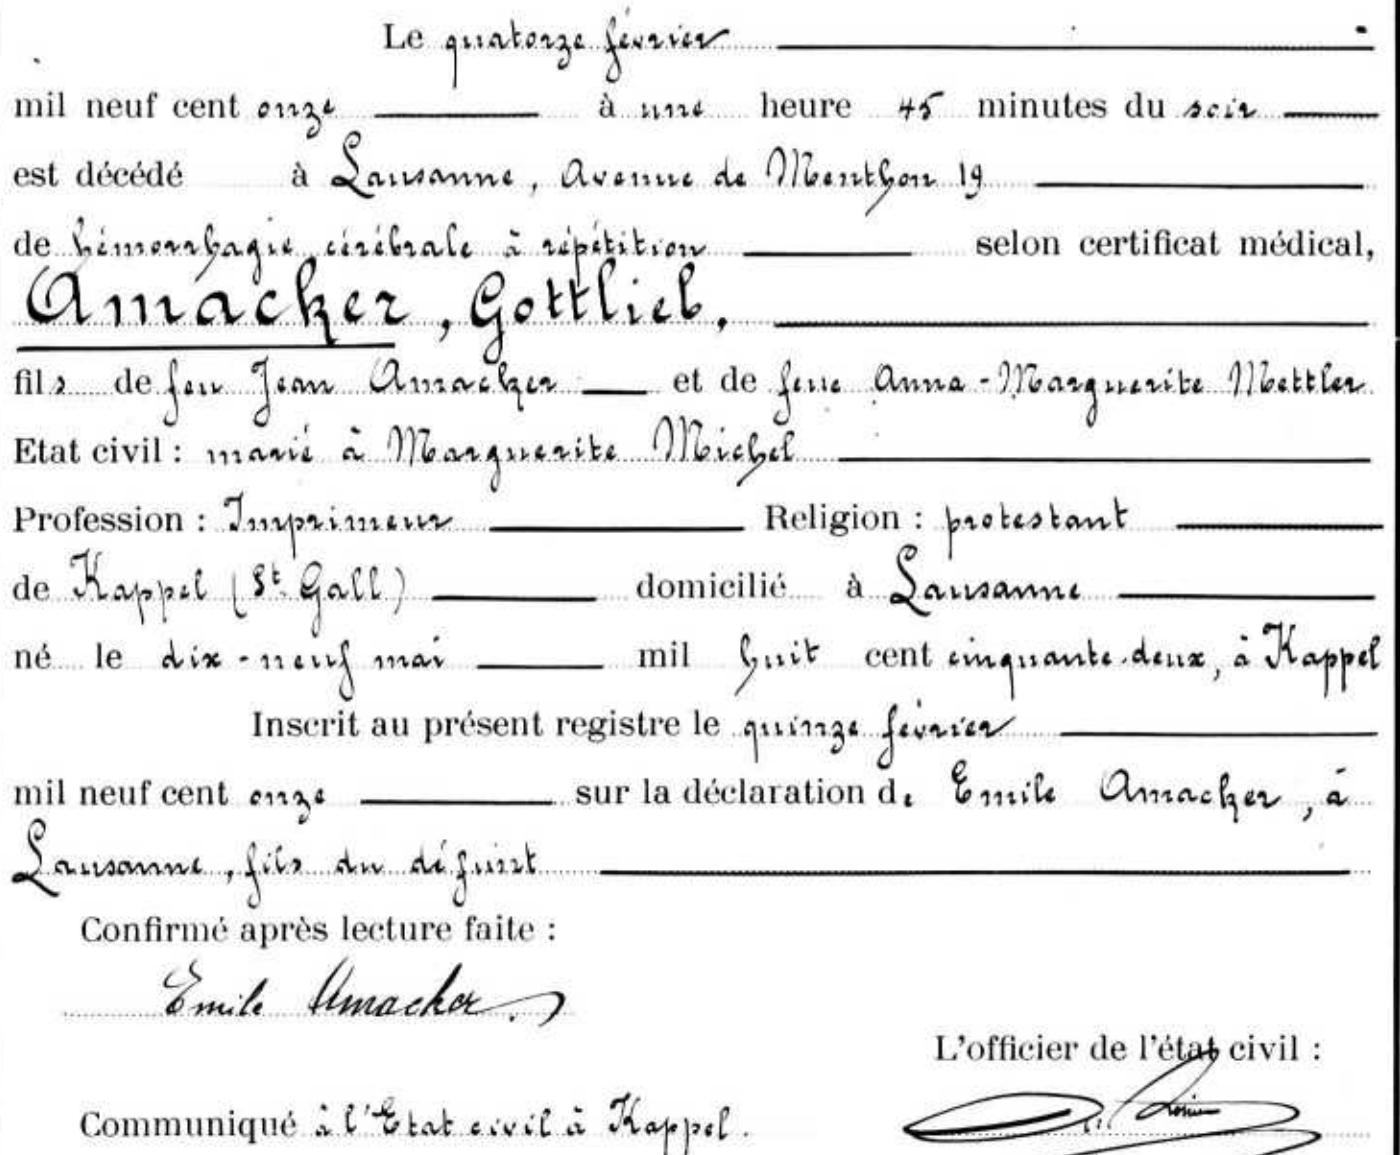 Le quatorze février
mil neuf cent onze à une heure 45 minutes du soir
est décédé à Lausanne, Avenue de Menthon 19
de hémorrhagie cérébrale à répétition selon certificat médical,
Amacker, Gottlieb,
fils de feu Jean Amacker et de feue Anna-Marguerite Mettler
Etat civil : marié à Marguerite Michel
Profession : Imprimeur Religion : protestant
de Kappel (St. Gall) domicilié à Lausanne
né le dix-neuf mai mil huit cent cinquante-deux, à Kappel
Inscrit au présent registre le quinze février
mil neuf cent onze sur la déclaration de Emile Amacker, à
Lausanne, fils du défunt
Confirmé après lecture faite :
Emile Amacker.
L'officier de l'état civil :
Communiqué à l'Etat civil à Kappel.